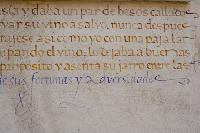 asia y daba un par de besos callados
y ar su vino a salvo, nunca despues
rajese a si como yo con una paja lar
pando el vino, lo dejaba a buenas
proposito y asenta su jarro entre las
de sus fortunas y adversidades